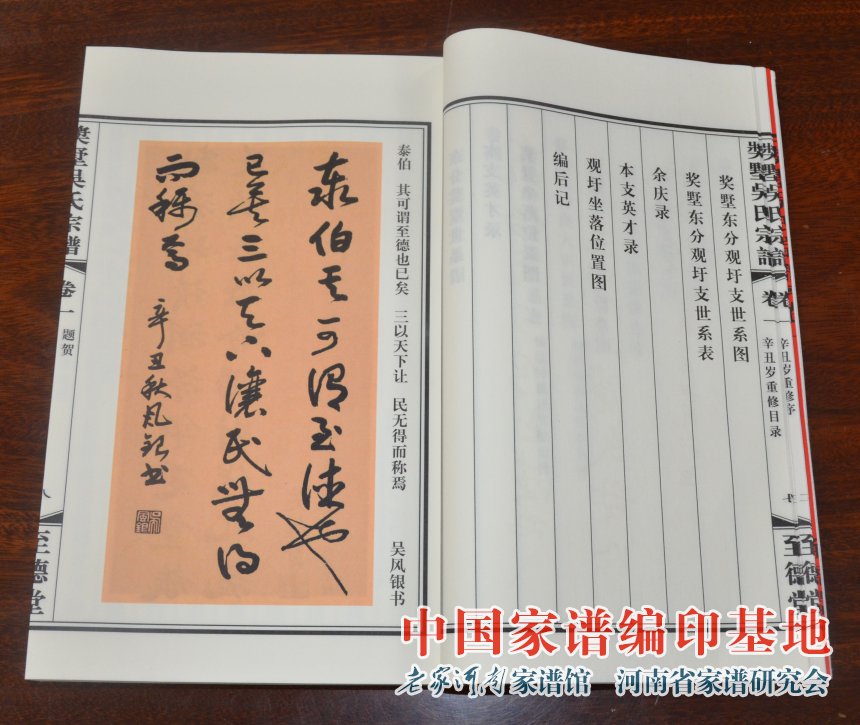 奖墅东分观圩支世系图
奖墅东分观圩支世系表
余庆录
本支英才录
观圩坐落位置图
编后记
奖墅吴氏宗谱
卷一
辛丑岁重修序
辛丑岁重修目录
至德堂
泰伯 其可谓至德也已矣 三以天下让 民无得而称焉 吴风银书
泰伯其可谓至德也
已矣三以天下让民无得
而称焉
辛丑秋风银书
奖墅吴氏宗谱
卷一
题贺
八
至德堂
中国家谱编印基地
老家河南家谱馆 河南省家谱研究会